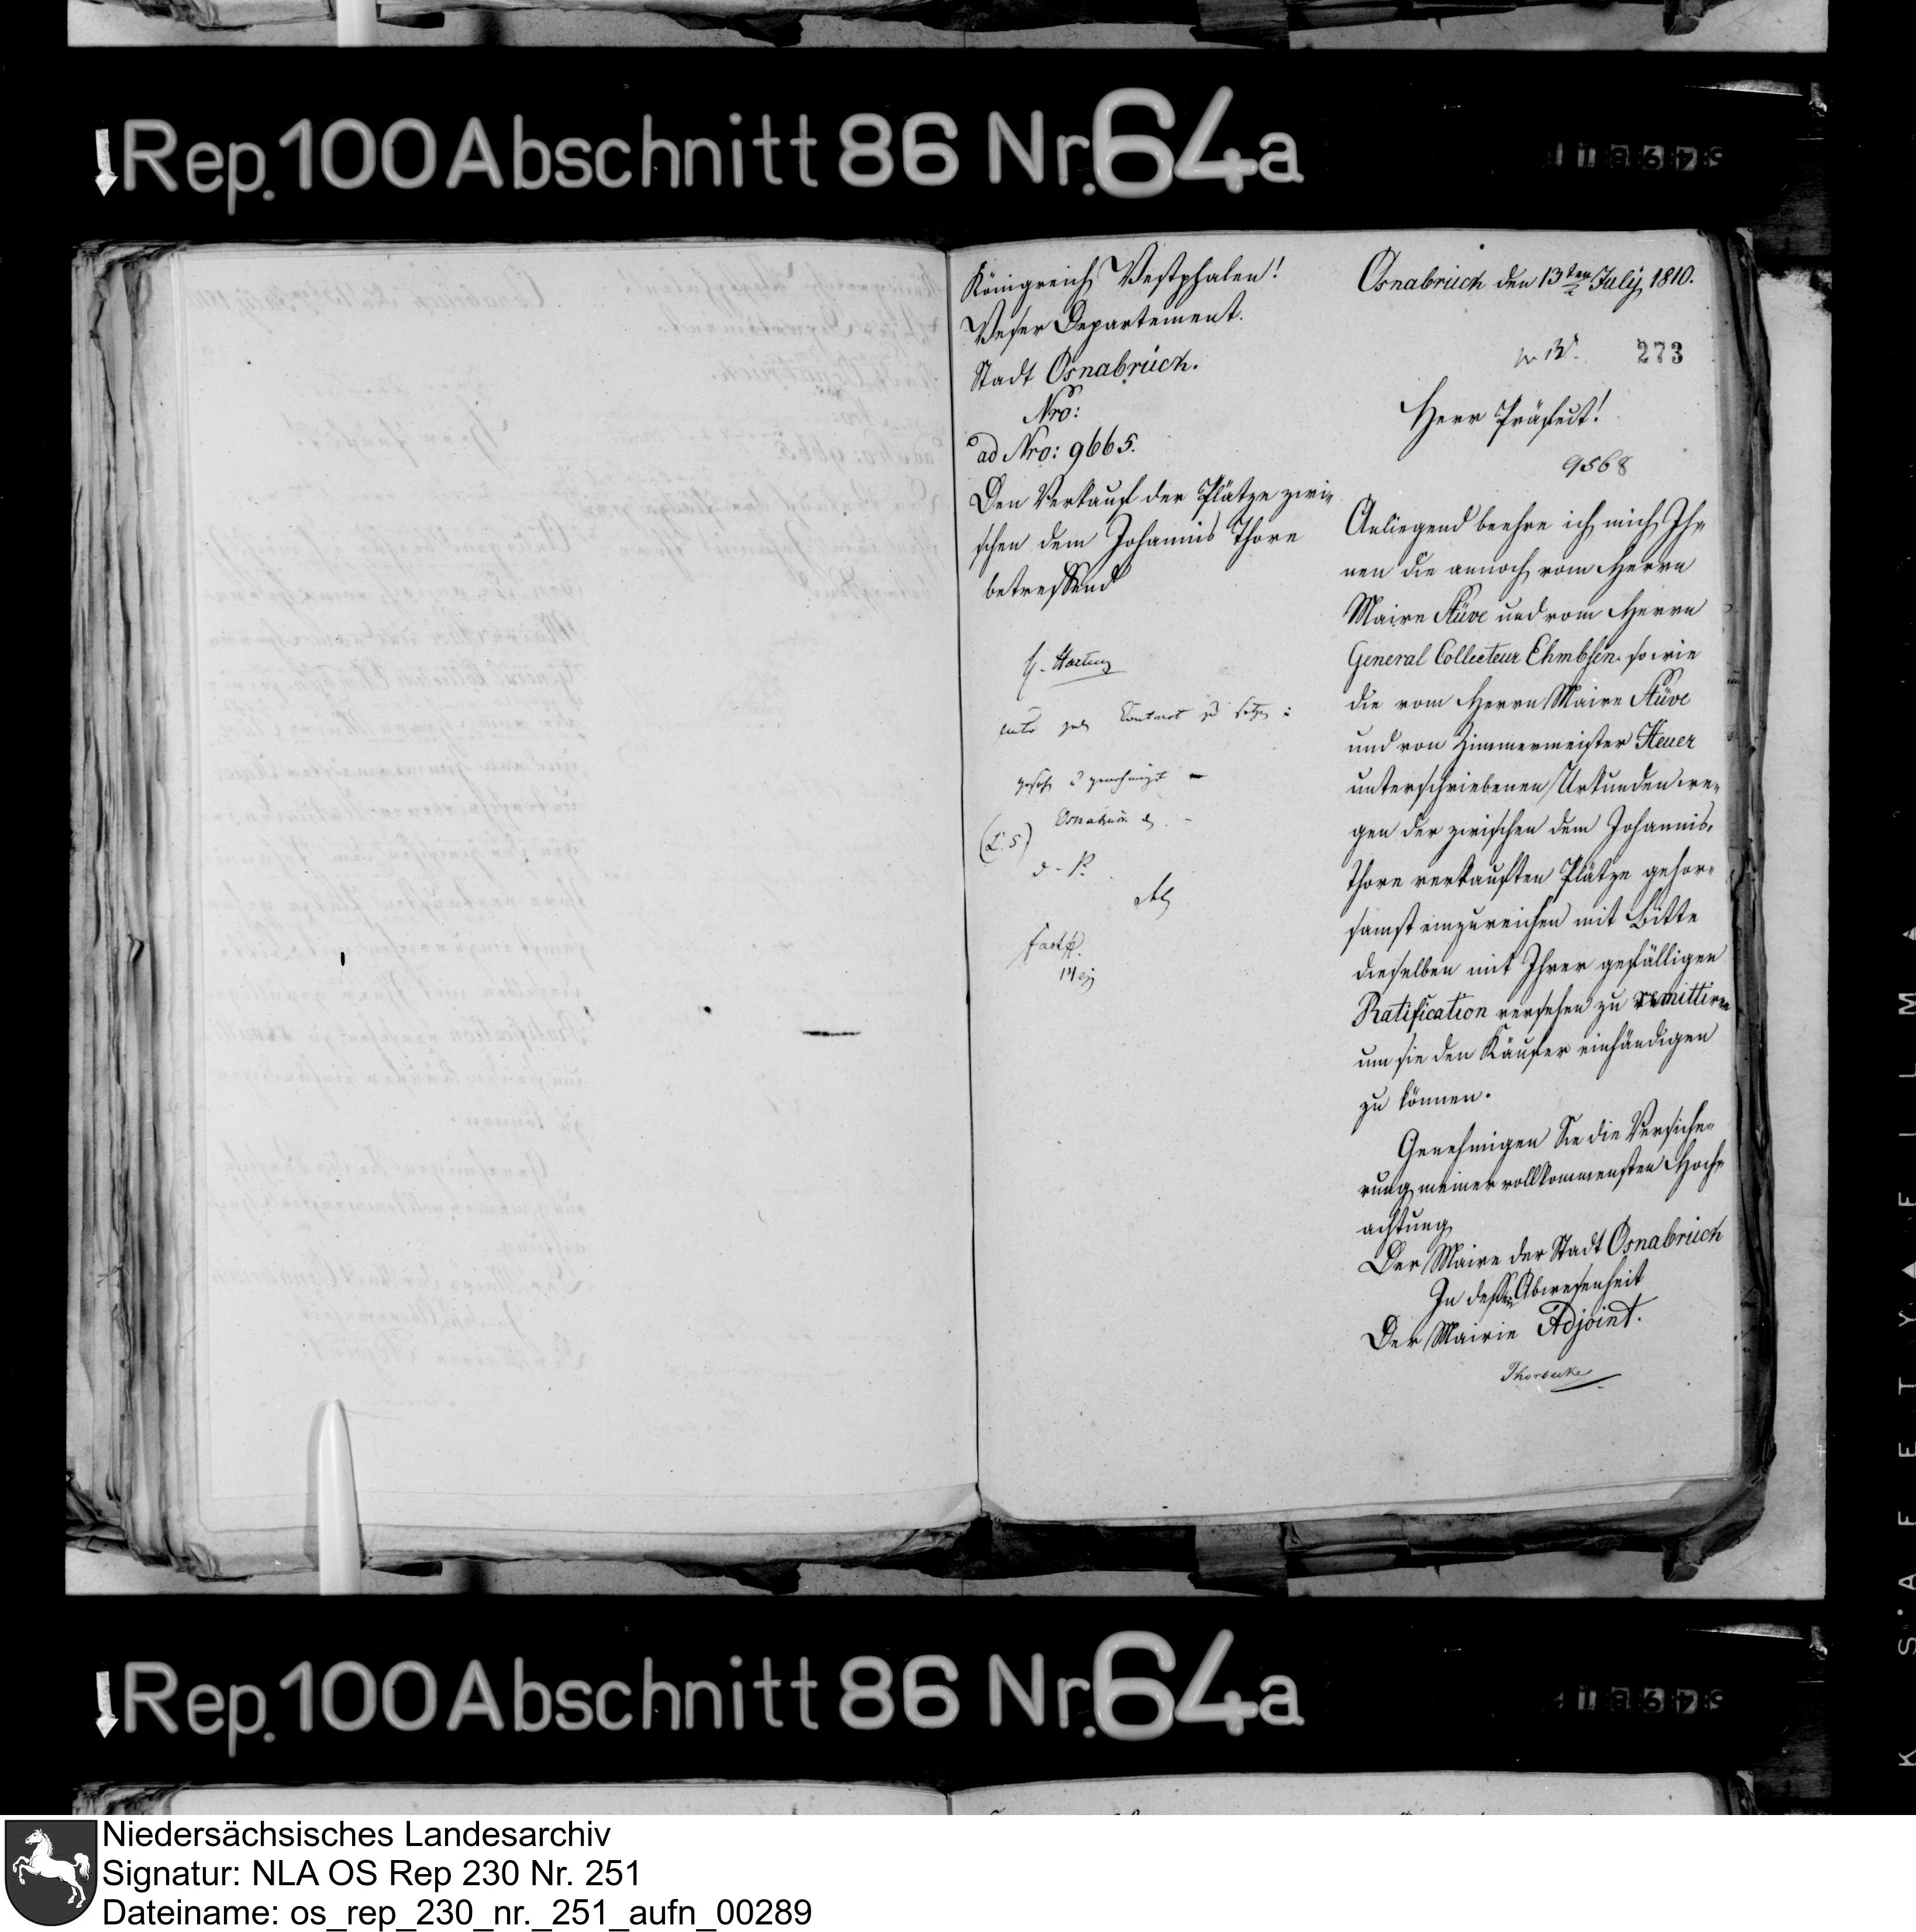 Rep. 100 Abschnitt 86 Nr. 64a
Königreich Westphalen!
Weser Departement.
Stadt Osnabrück.
Nro:
ad Nro: 9665.
Den Verkauf der Plätze zwi-
schen dem Johannis Thore
betreffend
H. Hartung
unter jeden Contract zu setzen:
gesehen u genehmigt
Osnabrück d.
(L. S)
d. P.
14 ej
Osnabrück den 13ten July 1810.
273
Herr Präfect!
9568
Anliegend beehre ich mich Ih-
nen die annoch vom Herrn
Maire Stüve und vom Herrn
General Collecteur Ehmbsen sowie
die vom Herrn Maire Stüve
und von Zimmermeister Heuer
unterschriebenen Urkunden we-
gen der zwischen dem Johannis-
Thore verkauften Plätze gehor-
samst einzureichen mit Bitte
dieselben mit Ihrer gefälligen
Ratification versehen zu remittiren
um sie den Käufer einhändigen
zu können.
Genehmigen Sie die Versiche-
rung meiner vollkommensten Hoch-
achtung
Der Maire der Stadt Osnabrück
In dessen Abwesenheit
Der Mairie Adjoint.
Thorbecke
Rep. 100 Abschnitt 86 Nr. 64a
K S.A.F.E.T.Y▲F I L M▲
Niedersächsisches Landesarchiv
Signatur: NLA OS Rep 230 Nr. 251
Dateiname: os_rep_230_nr._251_aufn_00289